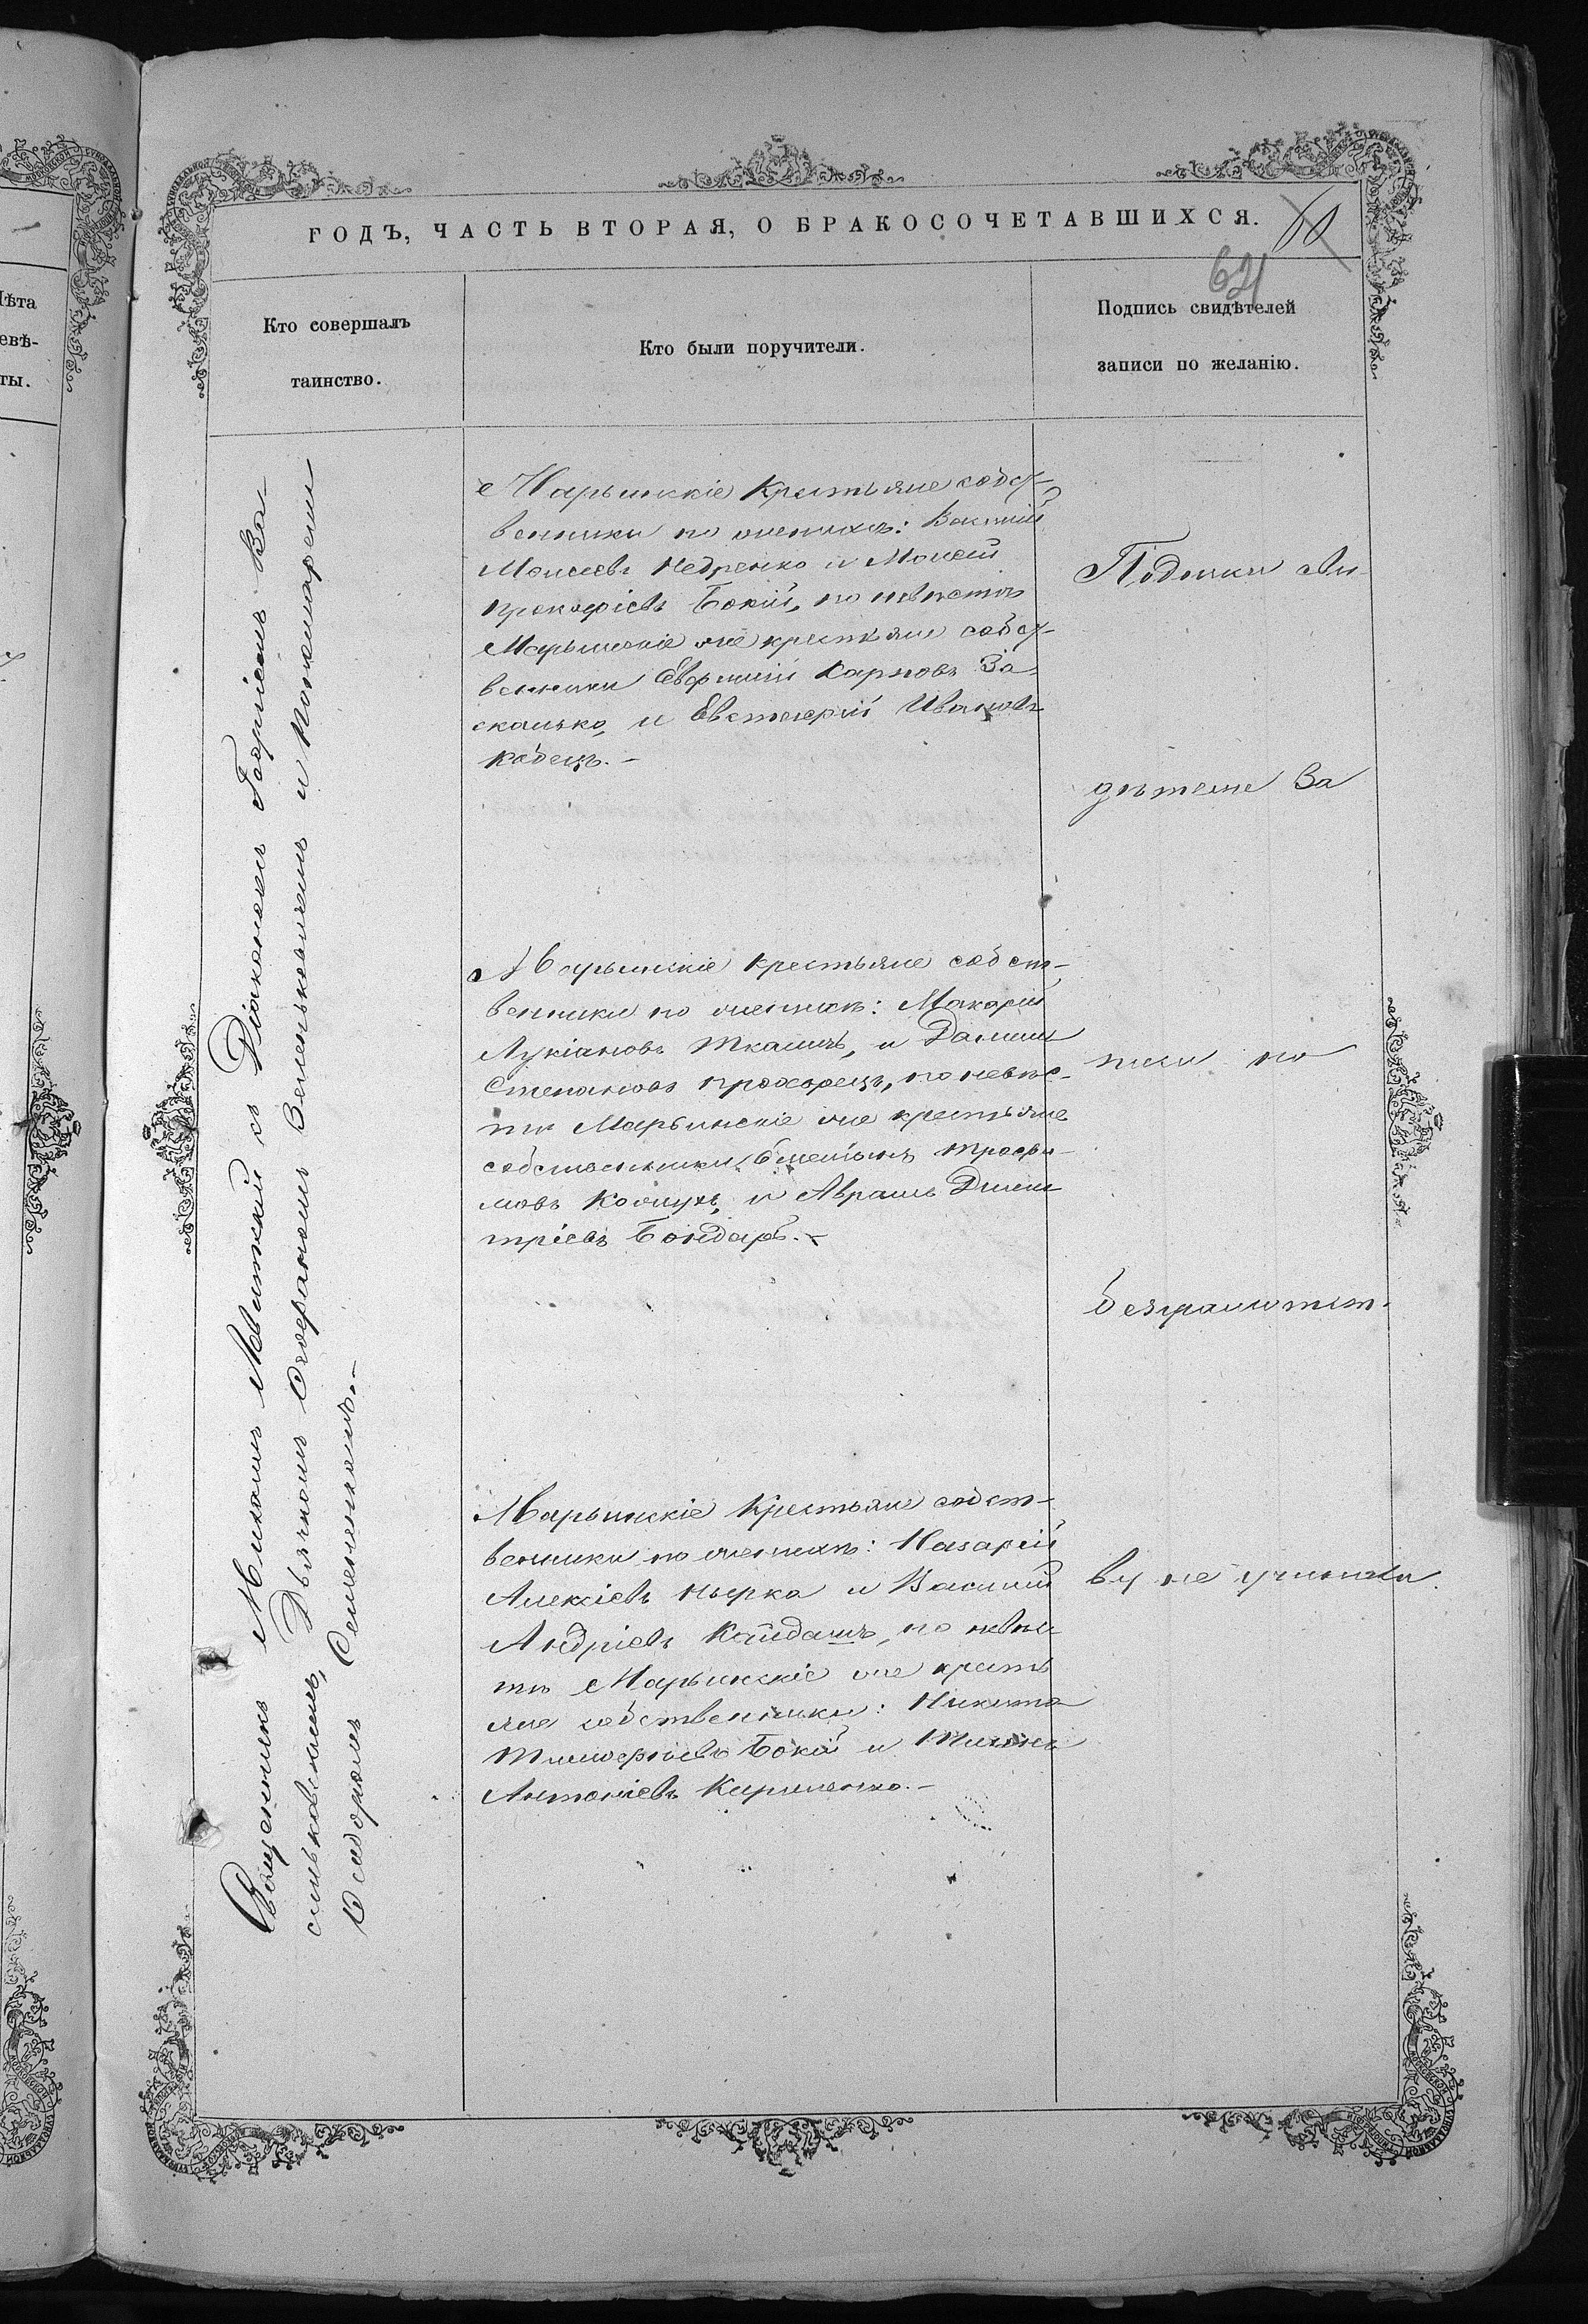 ГОДЪ, ЧАСТЬ ВТОРАЯ, О БРАКОСОЧЕТАВШИХСЯ.
60
62
Лѣта
евѣ-
ты.
Кто совершалъ
таинство.
Кто были поручители.
Подпись свидѣтелей
записи по желанію.
Священникъ Михаилъ Левитскій съ Діакономъ Георгіемъ Ва-
сильковскимъ, Дьячкомъ Стефаномъ Величковичемъ и Пономаремъ
Исидоромъ Семененкомъ.-
Марьинскіе Крестьяне собст-
венники по женихѣ: Василій
Моисеевъ Недренко и Моисей
Прокофіевъ Бокій, по невѣстѣ
Марьинскіе же крестьяне собст-
венники Евфимій Карповъ За-
скалько, и Евстафій Ивановъ
Кобецъ.-
Марьинскіе крестьяне собст-
венники по женихѣ: Макарій
Лукіановъ Ткачъ, и Даніилъ
Степановъ Прохорецъ, по невѣс-
тѣ Марьинскіе же крестьяне
собственники, Емеліянъ Трофи-
мовъ Кожухъ, и Аврамъ Дими
тріевъ Бондарь.-
Марьинскіе Крестьяне собст-
венники по женихѣ: Назарій
Алексіевъ Цырка и Василій
Андріевъ Кайдашъ, по невѣс-
тѣ Марьинскіе же кресть
яне собственники: Никита
Тимофеіевъ Бокій и Тихонъ
Антоніевъ Кириченко.-
Подписи сви-
дѣтеле За
писи по
безграмотст-
ву не учинили.